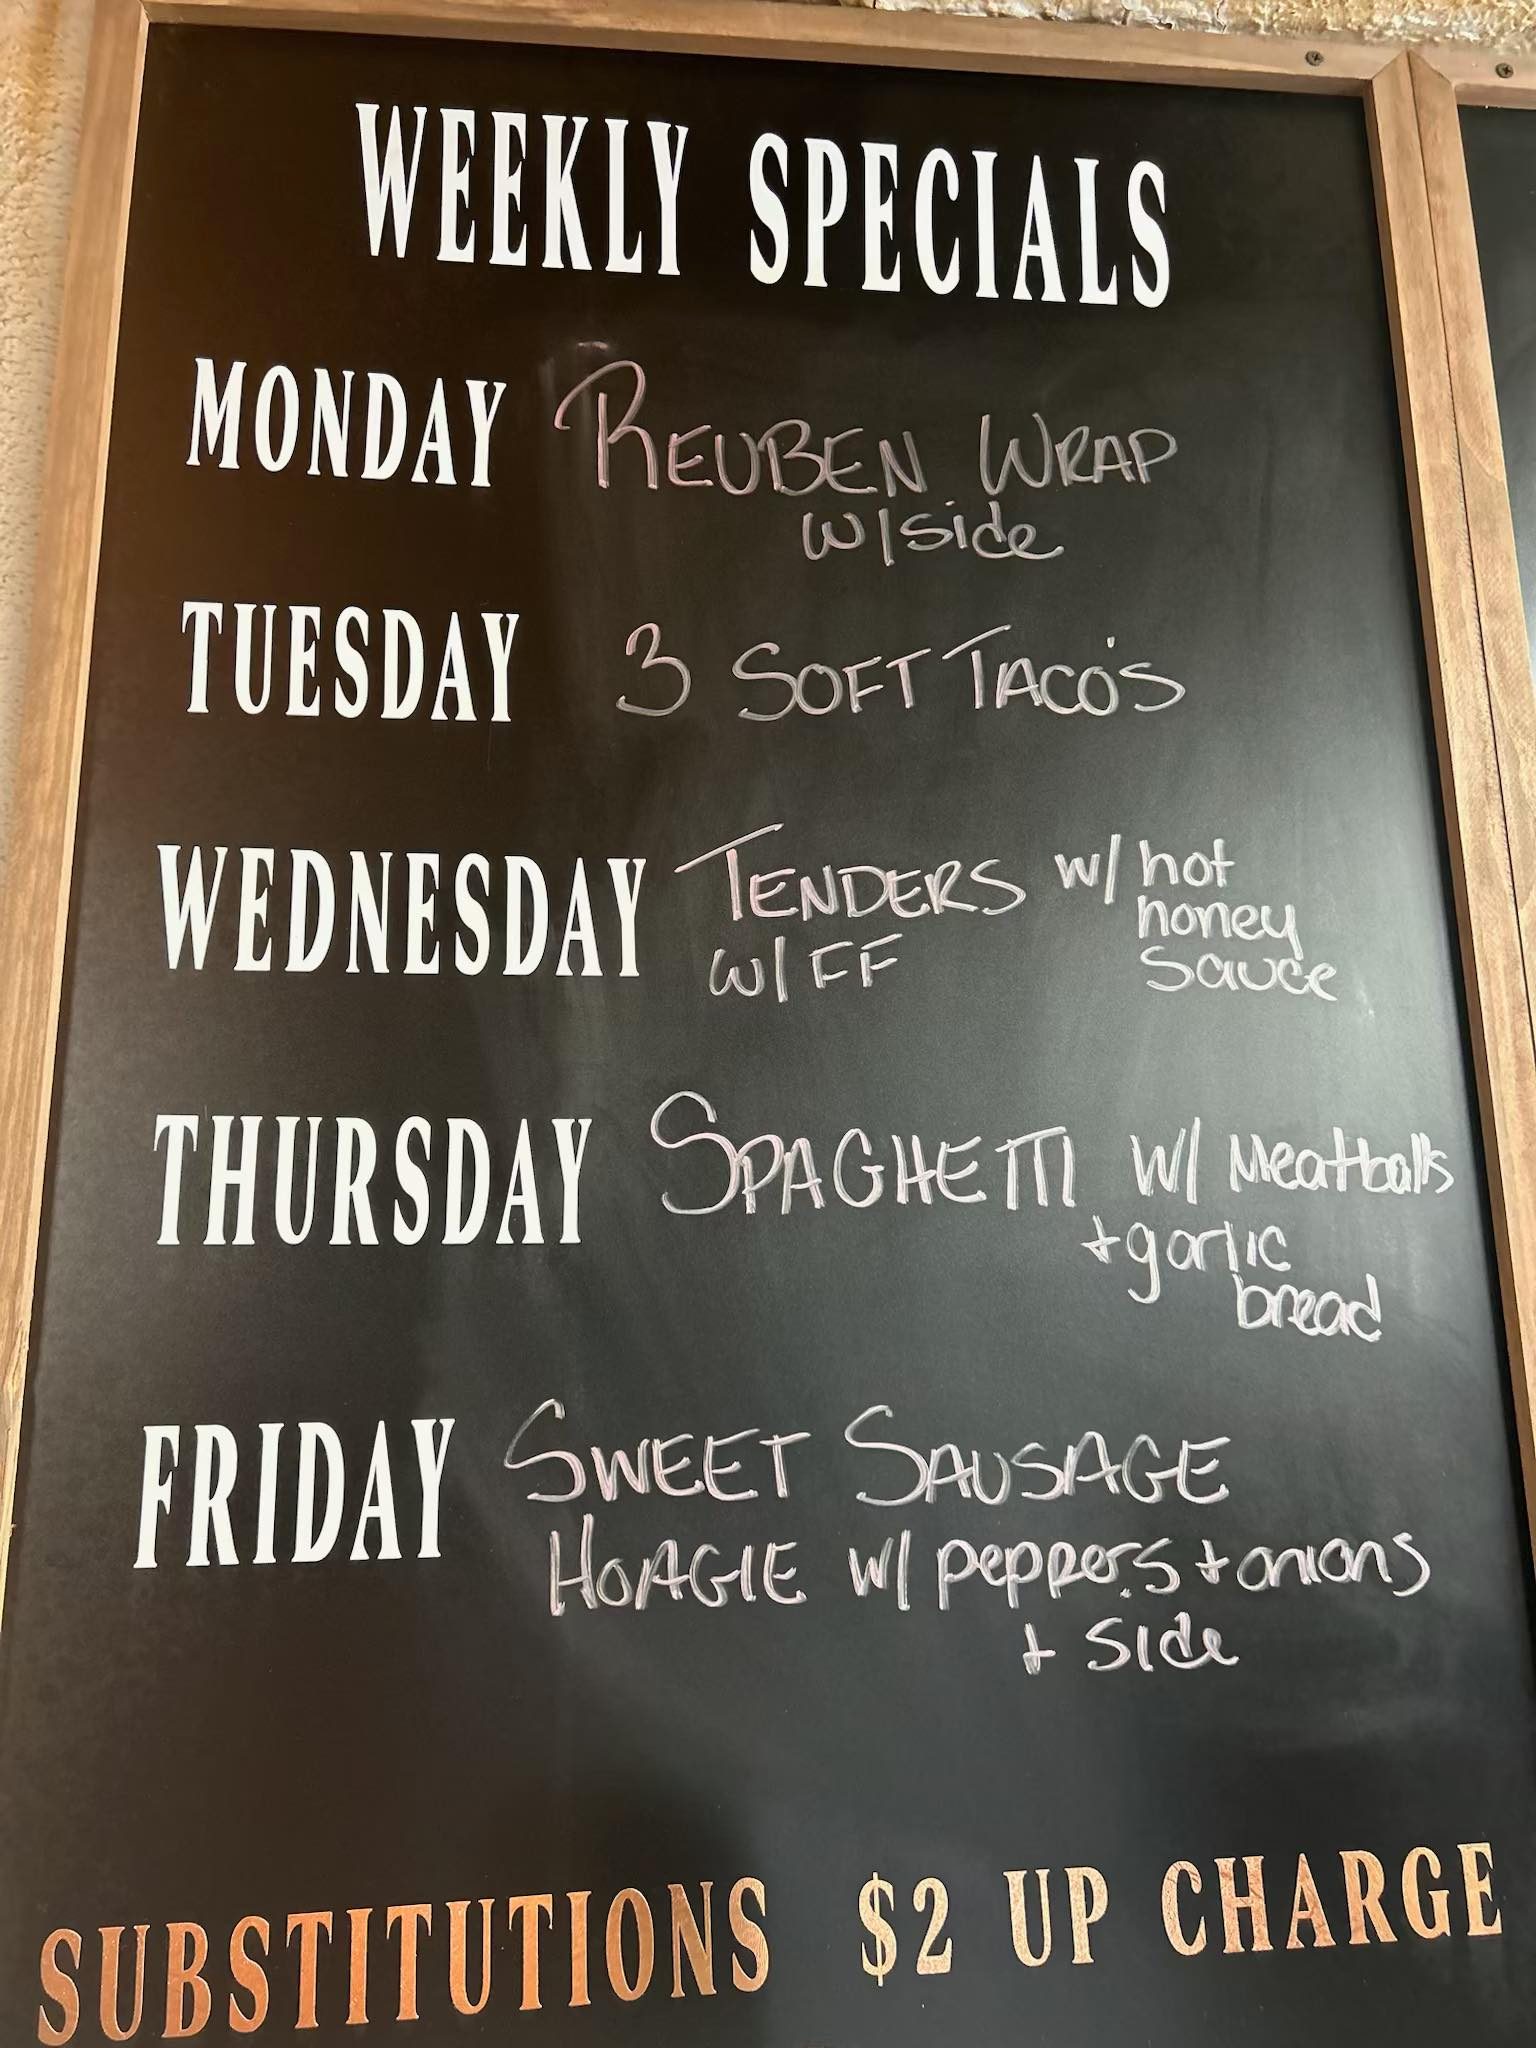 WEEKLY SPECIALS
MONDAY REUBEN WRAP
w/side
TUESDAY 3 SOFT TACO'S
WEDNESDAY TENDERS w/ hot
honey
w/FF sauce
THURSDAY SPAGHETTI w/ Meatballs
+ garlic
bread
FRIDAY SWEET SAUSAGE
HOAGIE w/ peppers + onions
+ side
SUBSTITUTIONS $2 UP CHARGE